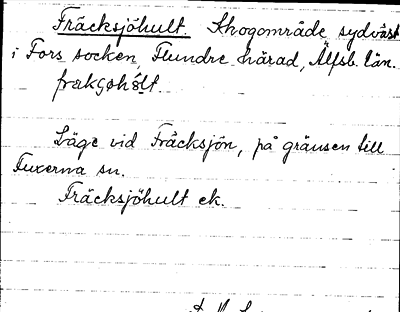 Fräcksjöhult. Skogområde sydväst
i Fors socken, Flundre härad, Älfsb. län.
Läge vid Fräcksjön, på gränsen till
Tuxerna sn.
Fräcksjöhult ek.